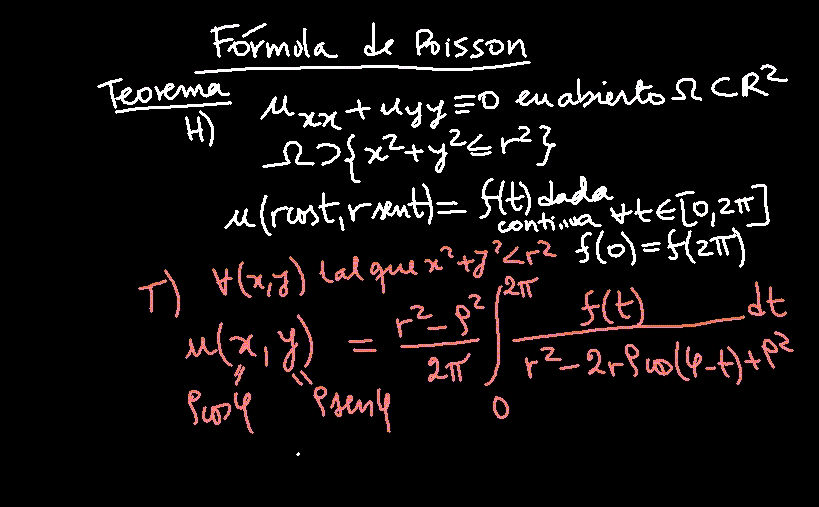 Fórmula de Poisson
Teorema
H) u_xx + u_yy ≡ 0 en abierto Ω ⊂ R²
Ω ⊃ {x² + y² ≤ r²}
u(r cos t, r sen t) = f(t) dada continua ∀ t ∈ [0, 2π]
f(0) = f(2π)
T) ∀(x, y) tal que x² + y² < r²
u(x, y) = \frac{r² - ρ²}{2π} ∫_0^{2π} \frac{f(t)}{r² - 2rρ cos(φ - t) + ρ²} dt
ρ cos φ ρ sen φ